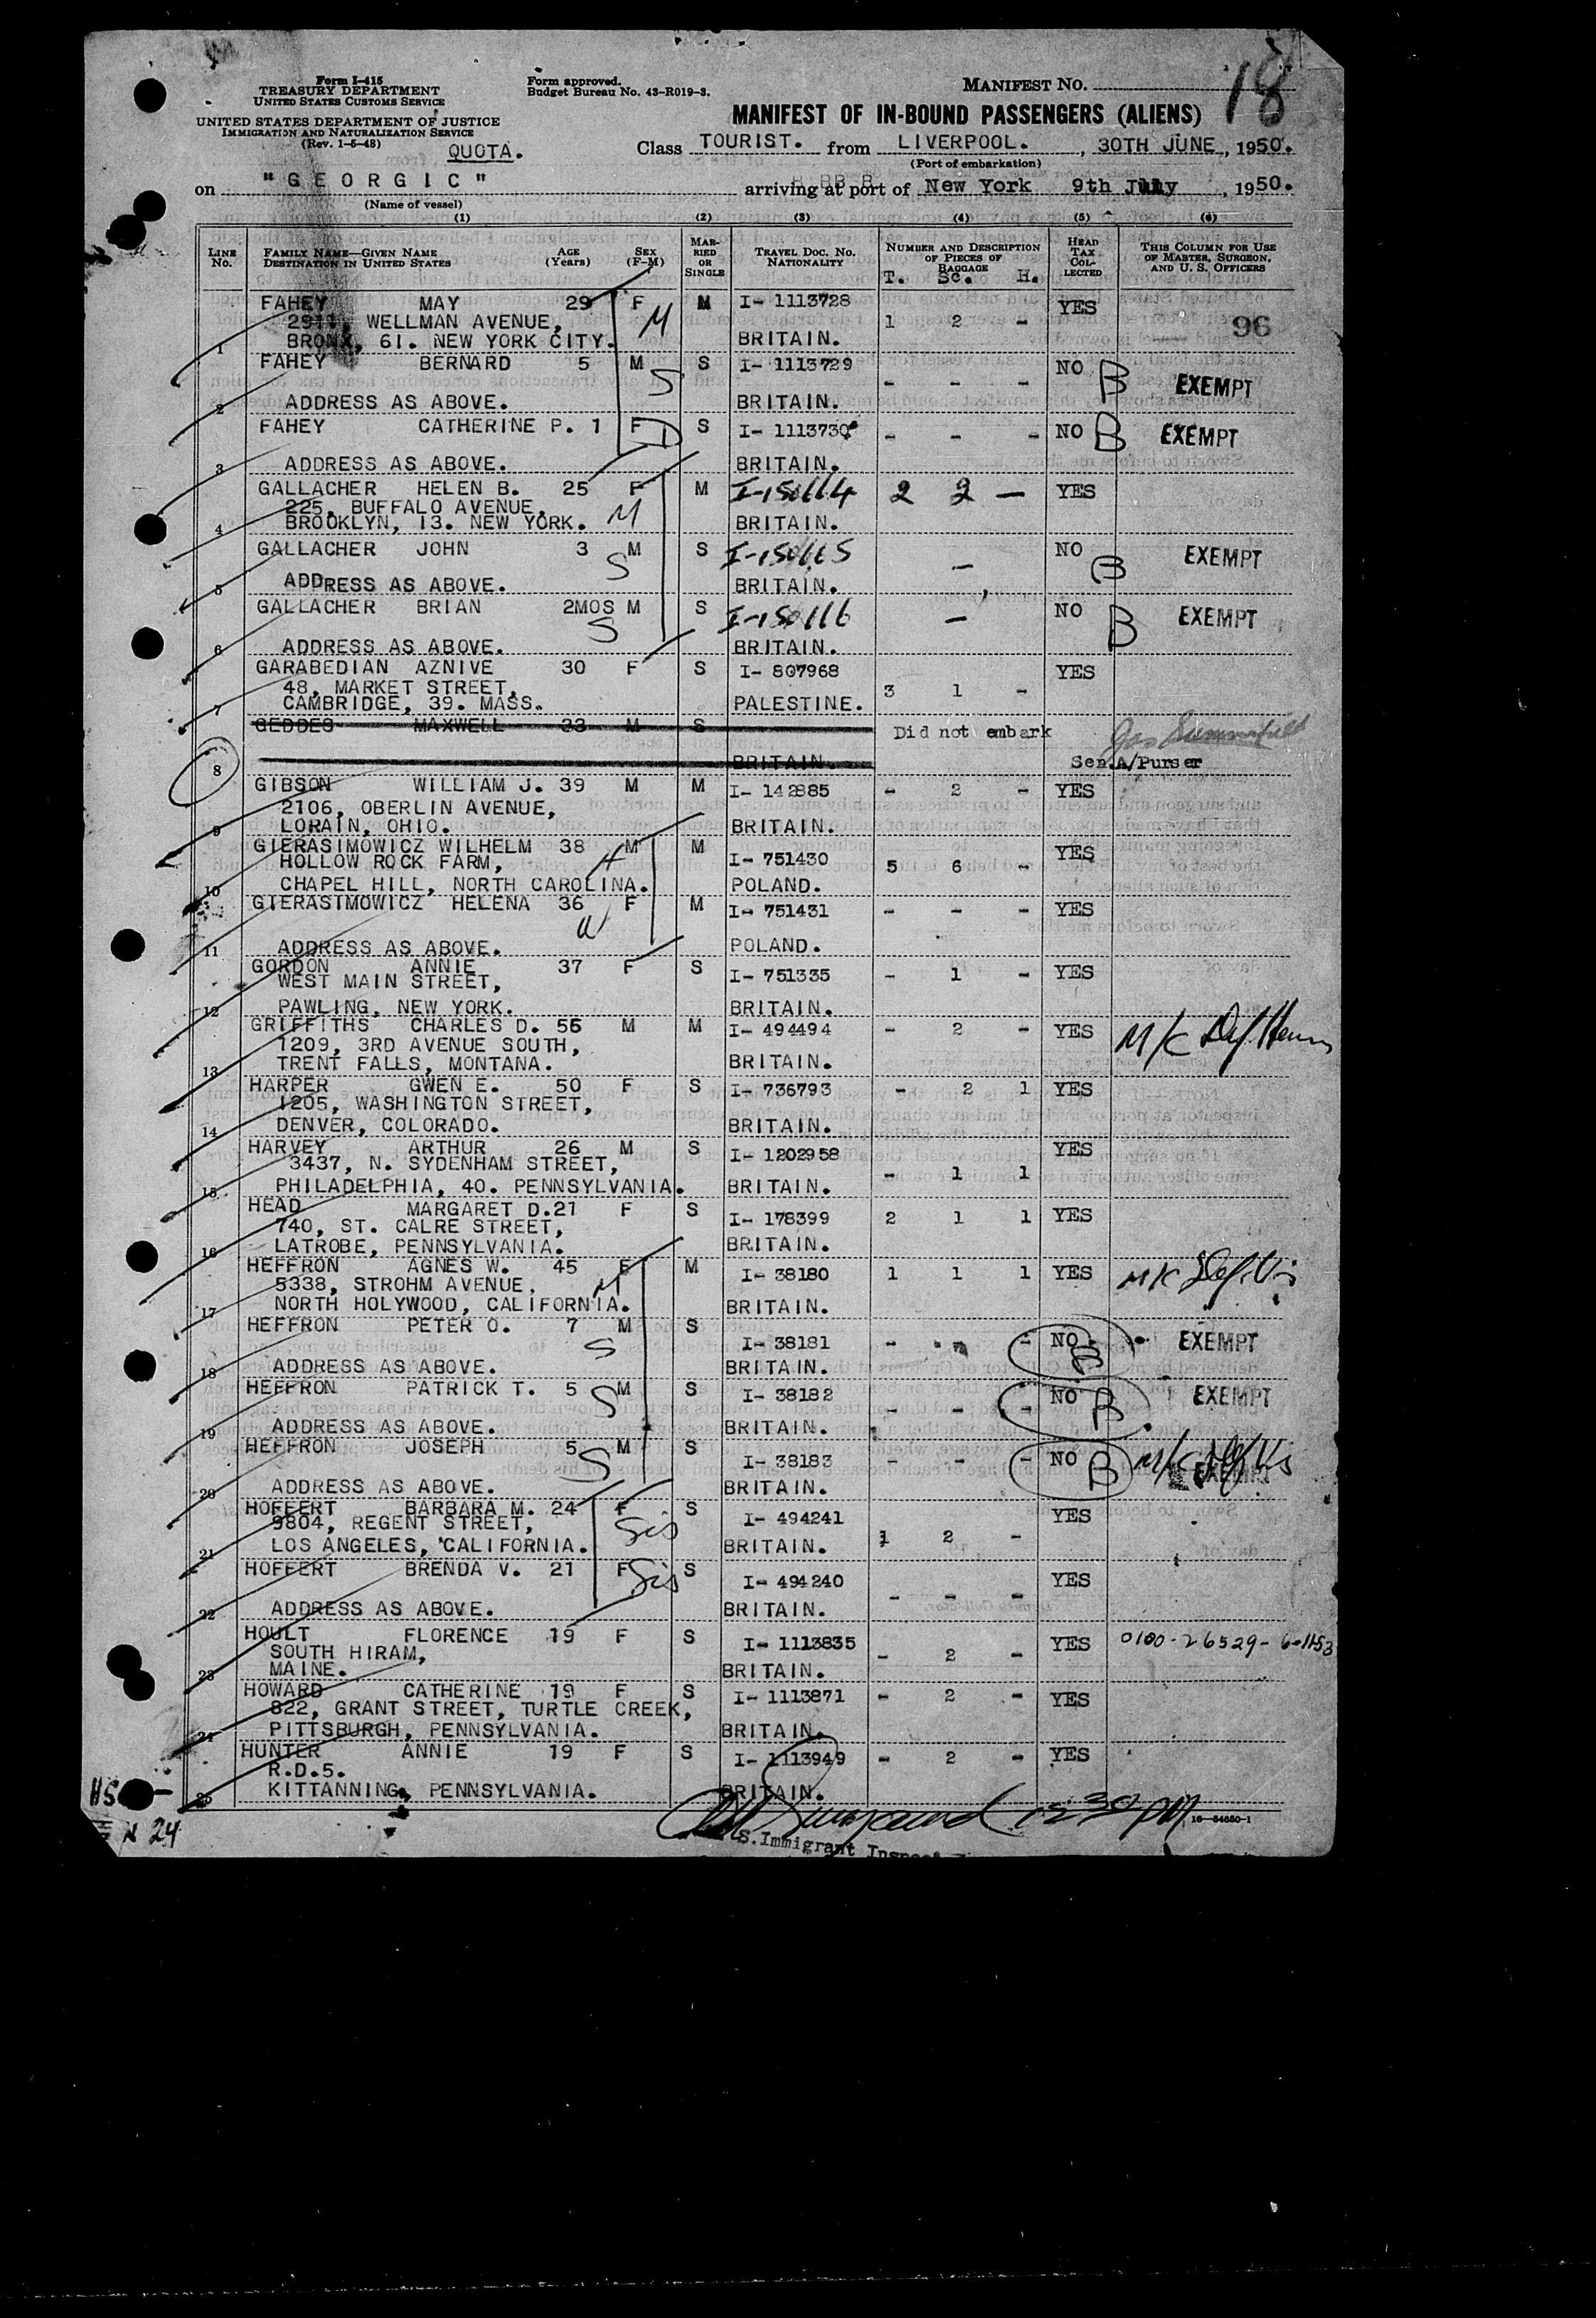 18
Form I-415
TREASURY DEPARTMENT
UNITED STATES CUSTOMS SERVICE
UNITED STATES DEPARTMENT OF JUSTICE
IMMIGRATION AND NATURALIZATION SERVICE
(Rev. 1-5-48)
Form approved.
Budget Bureau No. 43-R019-3.
MANIFEST NO.
MANIFEST OF IN-BOUND PASSENGERS (ALIENS)
QUOTA. Class TOURIST. from LIVERPOOL. , 30TH JUNE , 1950.
(Port of embarkation)
on "GEORGIC" arriving at port of New York 9th July , 1950.
(Name of vessel)
(1) (2) (3) (4) (5) (6)
LINE NO. FAMILY NAME—GIVEN NAME DESTINATION IN UNITED STATES AGE (Years) SEX (F-M) MARRIED OR SINGLE TRAVEL DOC. NO. NATIONALITY NUMBER AND DESCRIPTION OF PIECES OF BAGGAGE HEAD TAX COLLECTED THIS COLUMN FOR USE OF MASTER, SURGEON, AND U. S. OFFICERS
T. Sc. H.
FAHEY MAY 29 F M I- 1113728 YES
WELLMAN AVENUE, M 1 2 - 96
1 BRONX, 61. NEW YORK CITY. BRITAIN.
FAHEY BERNARD 5 M S I- 1113729 - - - NO B EXEMPT
S
2 ADDRESS AS ABOVE. BRITAIN.
FAHEY CATHERINE P. 1 F D S I- 1113730 - - - NO B EXEMPT
3 ADDRESS AS ABOVE. BRITAIN.
GALLACHER HELEN B. 25 F M I-150664 2 2 - YES
225, BUFFALO AVENUE, M
4 BROOKLYN, 13. NEW YORK. BRITAIN.
GALLACHER JOHN 3 M S I-150665 - NO B EXEMPT
S
5 ADDRESS AS ABOVE. BRITAIN.
GALLACHER BRIAN 2MOS M S I-150666 - NO B EXEMPT
S
6 ADDRESS AS ABOVE. BRITAIN.
GARABEDIAN AZNIVE 30 F S I- 807968 YES
48, MARKET STREET, 3 1 -
7 CAMBRIDGE, 39. MASS. PALESTINE.
GEDDES MAXWELL 33 M S Did not embark
8 BRITAIN. Sen.A/Purser
GIBSON WILLIAM J. 39 M M I- 142885 - 2 - YES
2106, OBERLIN AVENUE,
9 LORAIN, OHIO. BRITAIN.
GIERASIMOWICZ WILHELM 38 M M I- 751430 YES
HOLLOW ROCK FARM, H 5 6 -
10 CHAPEL HILL, NORTH CAROLINA. POLAND.
GIERASIMOWICZ HELENA 36 F M I- 751431 - - - YES
W
11 ADDRESS AS ABOVE. POLAND.
GORDON ANNIE 37 F S I- 751335 - 1 - YES
WEST MAIN STREET,
12 PAWLING, NEW YORK. BRITAIN.
GRIFFITHS CHARLES D. 56 M M I- 494494 - 2 - YES M/C
1209, 3RD AVENUE SOUTH,
13 TRENT FALLS, MONTANA. BRITAIN.
HARPER GWEN E. 50 F S I- 736793 - 2 1 YES
1205, WASHINGTON STREET,
14 DENVER, COLORADO. BRITAIN.
HARVEY ARTHUR 26 M S I- 1202958 YES
3437, N. SYDENHAM STREET, - 1 1
15 PHILADELPHIA, 40. PENNSYLVANIA. BRITAIN.
HEAD MARGARET D.21 F S I- 178399 2 1 1 YES
740, ST. CALRE STREET,
16 LATROBE, PENNSYLVANIA. BRITAIN.
HEFFRON AGNES W. 45 F M I- 38180 1 1 1 YES M/C Def. Vis
5338, STROHM AVENUE, M
17 NORTH HOLYWOOD, CALIFORNIA. BRITAIN.
HEFFRON PETER O. 7 M S I- 38181 - - - NO B EXEMPT
S
18 ADDRESS AS ABOVE. BRITAIN.
HEFFRON PATRICK T. 5 M S I- 38182 - - - NO B EXEMPT
S
19 ADDRESS AS ABOVE. BRITAIN.
HEFFRON JOSEPH 5 M S I- 38183 - - - NO B M/C Def Vis
S EXEMPT
20 ADDRESS AS ABOVE. BRITAIN.
HOFFERT BARBARA M. 24 F S I- 494241 YES
9804, REGENT STREET, Sis 1 2 -
21 LOS ANGELES, CALIFORNIA. BRITAIN.
HOFFERT BRENDA V. 21 F Sis S I- 494240 - - - YES
22 ADDRESS AS ABOVE. BRITAIN.
HOULT FLORENCE 19 F S I- 1113835 - 2 - YES 0100-26529-
SOUTH HIRAM,
23 MAINE. BRITAIN.
HOWARD CATHERINE 19 F S I- 1113871 - 2 - YES
822, GRANT STREET, TURTLE CREEK,
24 PITTSBURGH, PENNSYLVANIA. BRITAIN.
HUNTER ANNIE 19 F S I- 1113949 - 2 - YES
R.D.5.
25 KITTANNING, PENNSYLVANIA. BRITAIN.
1230 PM
16-54650-1
24
S. Immigrant